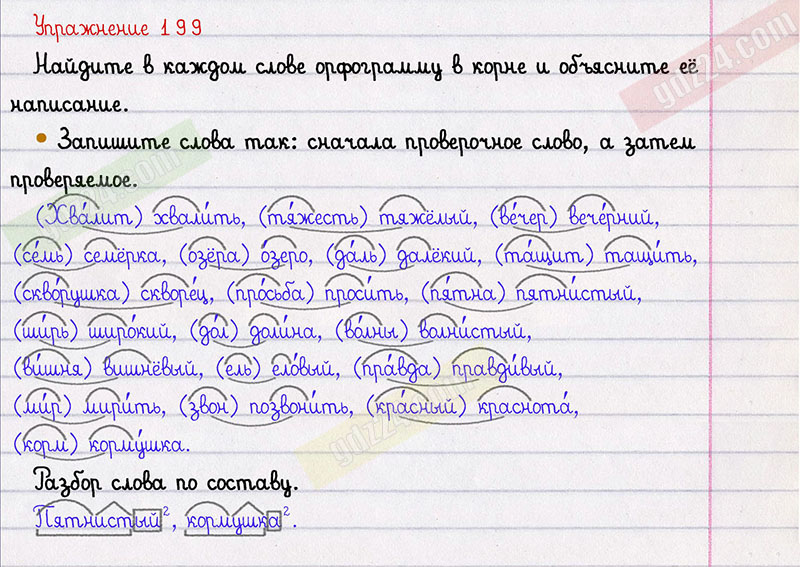 Упражнение 199
Найдите в каждом слове орфограмму в корне и объясните её
написание.
• Запишите слова так: сначала проверочное слово, а затем
проверяемое.
(Хва́лит) хвали́ть, (тя́жесть) тяжёлый, (ве́чер) вече́рний,
(се́мь) семёрка, (озёра) о́зеро, (да́ль) далёкий, (та́щит) тащи́ть,
(скво́рушка) скворе́ц, (про́сьба) проси́ть, (пя́тна) пятни́стый,
(ши́рь) широ́кий, (до́л) доли́на, (во́лны) волни́стый,
(ви́шня) вишнёвый, (ель) ело́вый, (пра́вда) правди́вый,
(ми́р) мири́ть, (звон) позвони́ть, (кра́сный) краснота́,
(корм) корму́шка.
Разбор слова по составу.
Пятнистый², кормушка².
gdz24.com
gdz24.com
gdz24.com